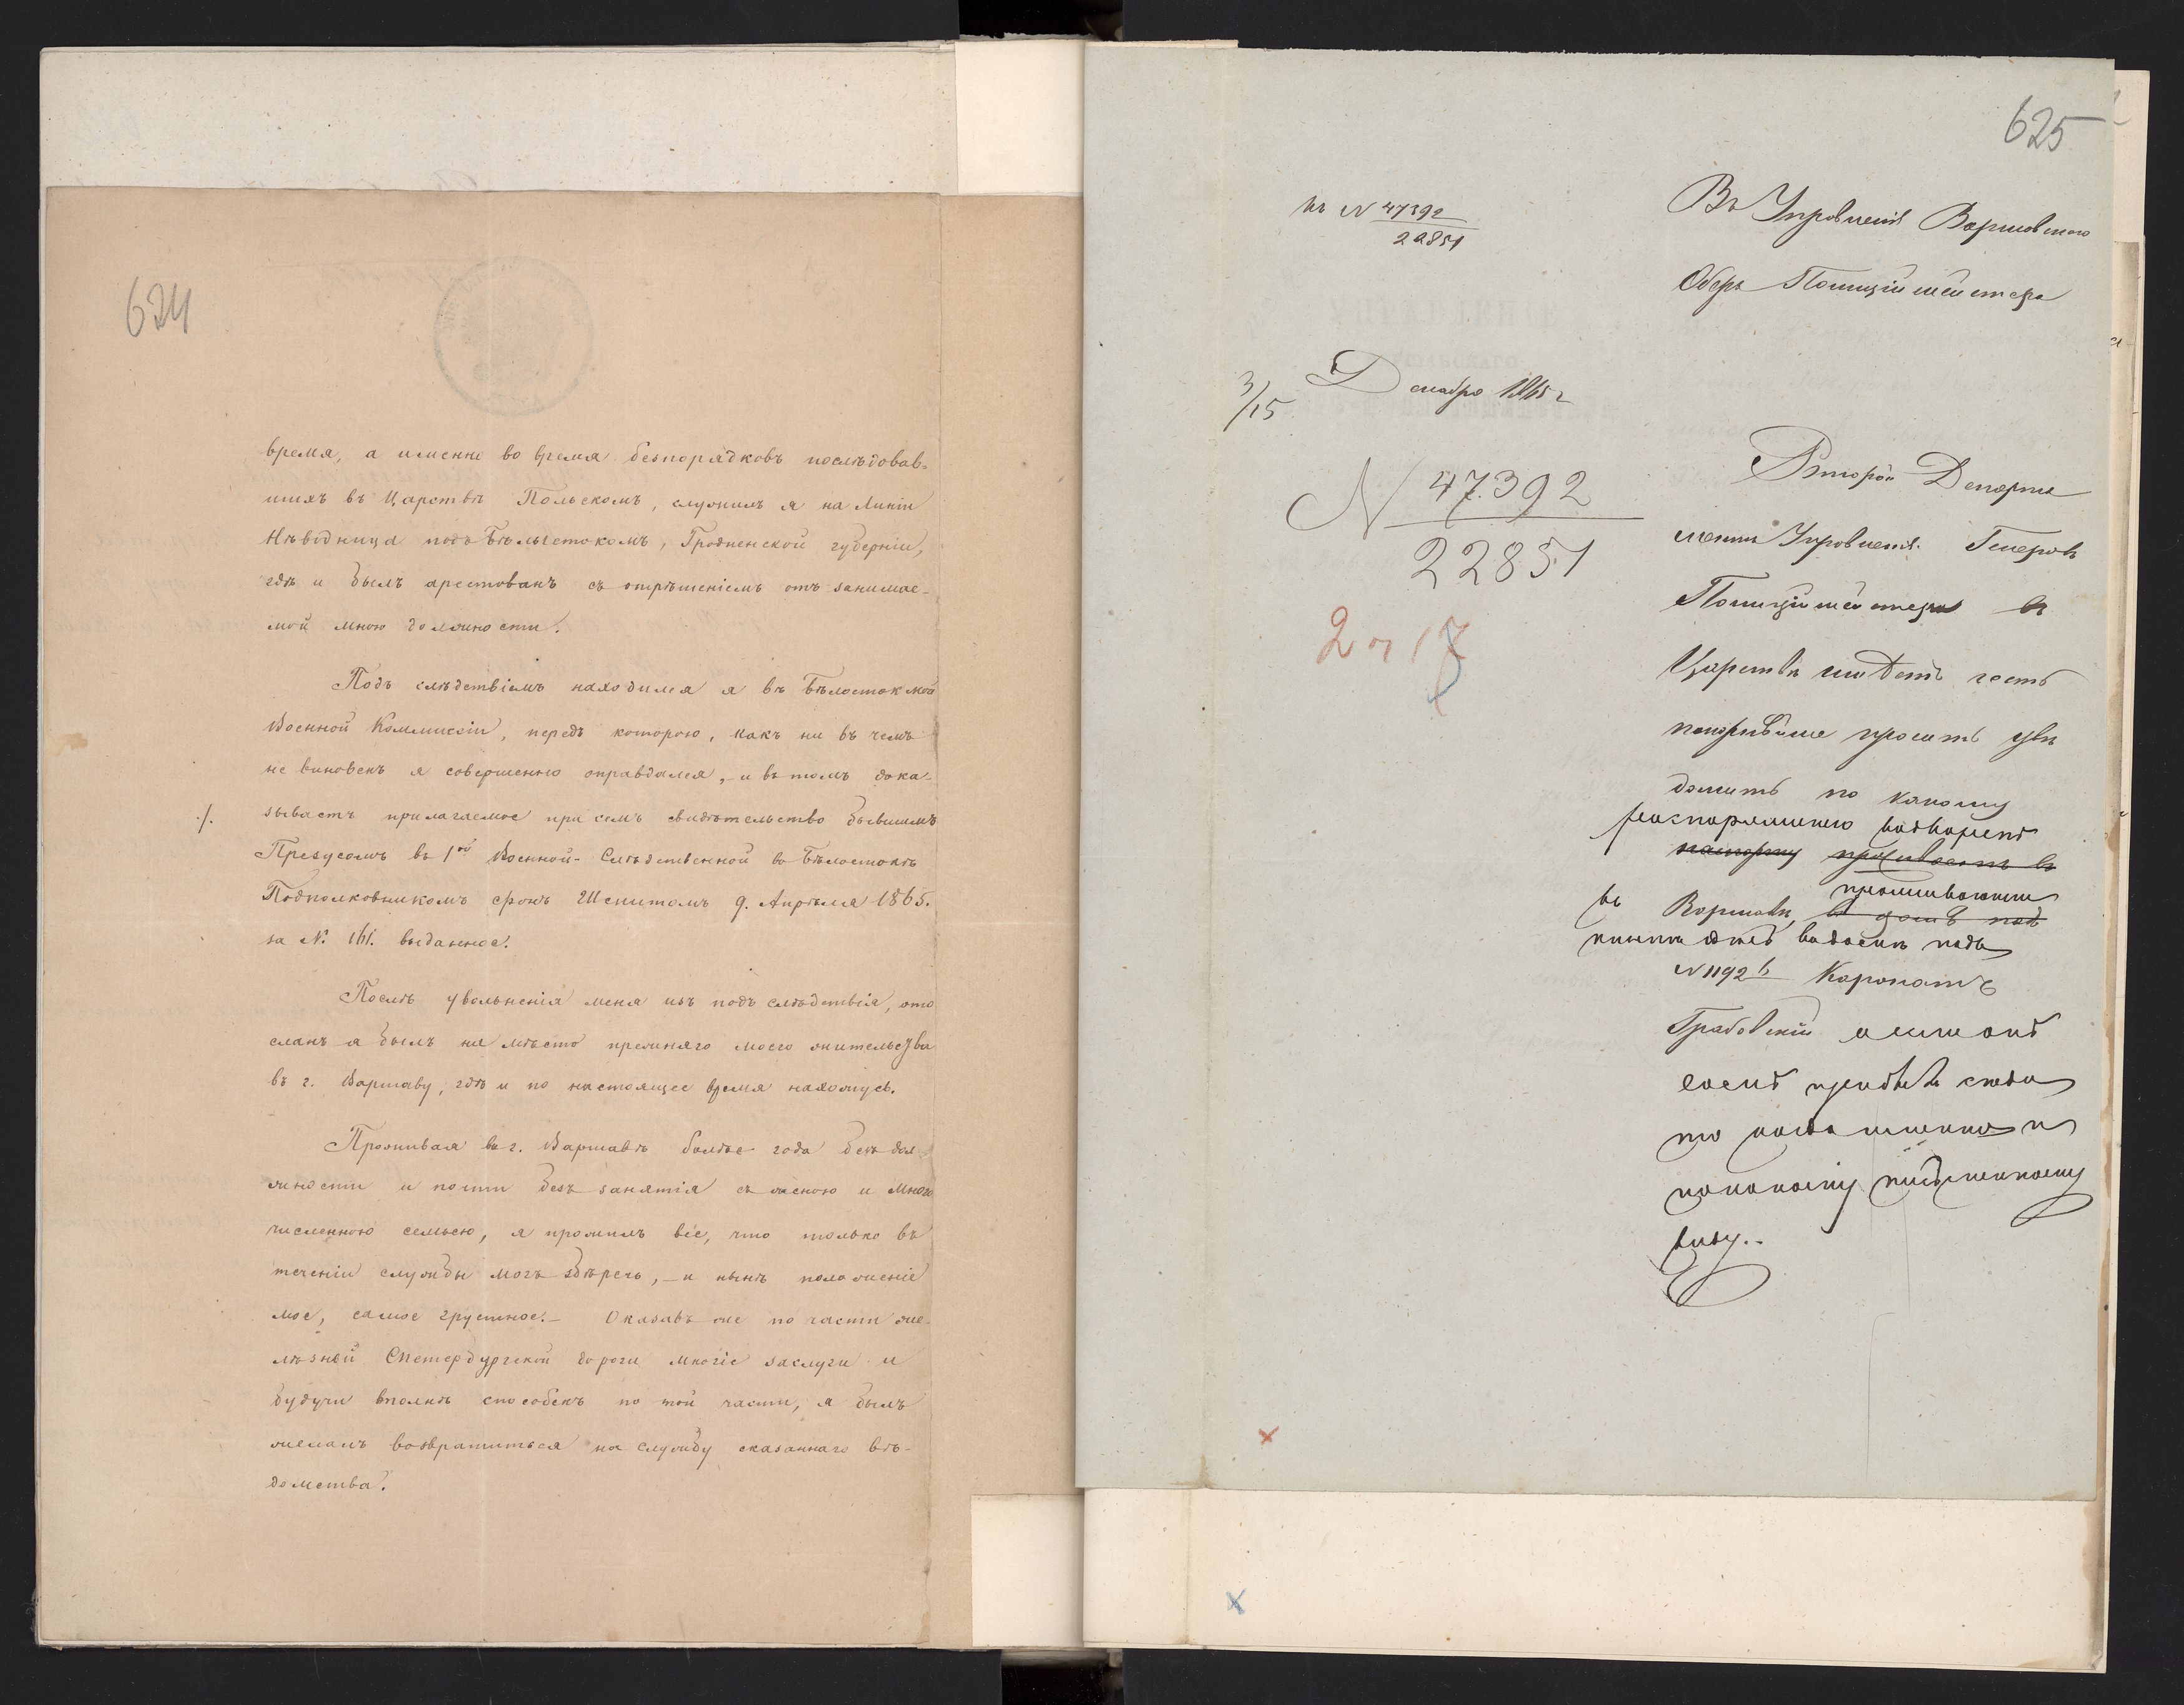 624
время, а именно во время безпорядковъ послѣдовав-
шихъ въ Царствѣ Польскомъ, служилъ я на линіи
Нѣводница подъ Бѣлыстокомъ, Гродненской губерніи,
гдѣ и былъ арестованъ съ отрѣшеніемъ отъ занимае-
мой мною должности.
Подъ слѣдствіемъ находился я въ Бѣлостокской
Военной Коммиссіи, передъ которою, какъ ни въ чемъ
не виновенъ я совершенно оправдался, - и въ томъ дока-
./. зываетъ прилагаемое при семъ свидѣтельство бывшимъ
Презусомъ въ 1ой Военной - Слѣдственной въ Бѣлостокѣ
Подполковникомъ фонъ 9. Апрѣля 1865.
за №. 161. выданное.
Послѣ увольненія меня изъ подъ слѣдствія, ото
сланъ я былъ на мѣсто прежняго моего жительства
въ г. Варшаву, гдѣ и по настоящее время нахожусь.
Проживая въ г. Варшавѣ болѣе года безъ дол-
жности и почти безъ занятія съ женою и много
численною семьею, я прожилъ все, что только въ
теченіи службы могъ сберечь, - и нынѣ положеніе
мое, самое грустное. - Оказавъ же по части же-
лѣзной СПетербургской дороги многіе заслуги и
будучи вполнѣ способенъ по той части, я былъ
желалъ возвратиться на службу сказаннаго вѣ-
домства.
625
къ N 47392
22851
Въ Управленіе Варшавскаго
Оберъ Полиціймейстера
3/15 Декабря 1865 г
N 47392
22851
Второй Департа
ментъ Управленія Генералъ
Полиціймейстера въ
Царствѣ имѣетъ честь
покорнѣйше просить увѣ
домить по какому
распоряженію
паспорту проживаетъ въ
проживающій
въ Варшавѣ, въ домѣ подъ
подъ
N 1192 b
Грабовскій